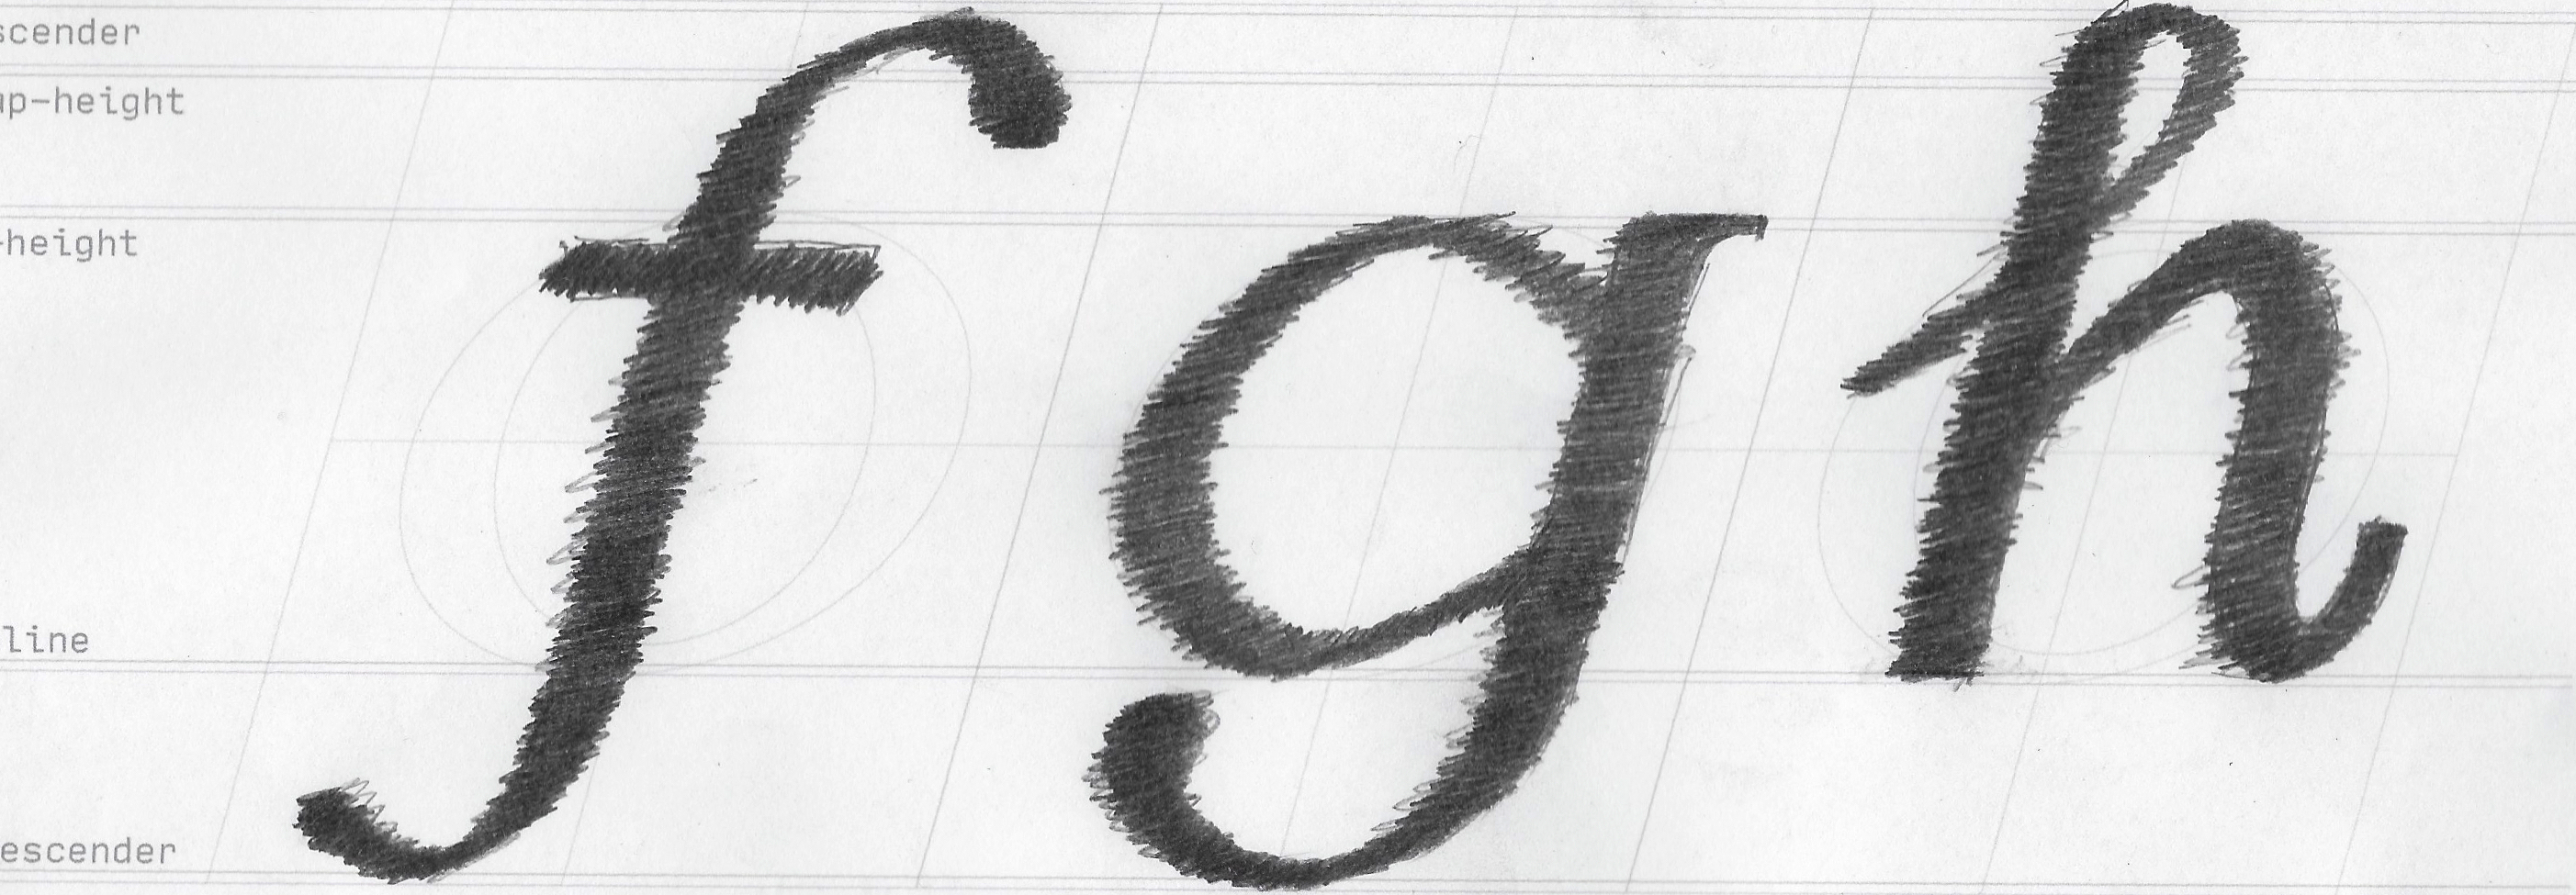 scender
up-height
-height
f g h
line
escender